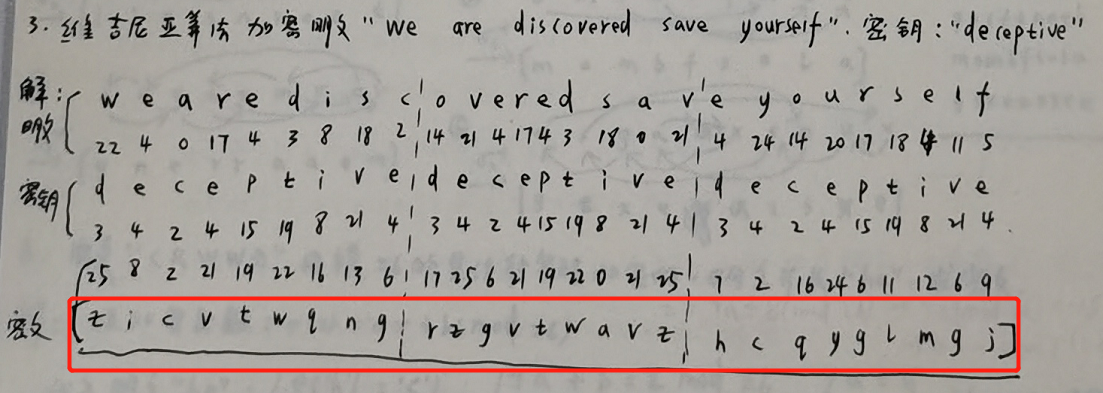 3. 维吉尼亚算法加密明文"we are discovered save yourself". 密钥:"deceptive"
解:
明文 w e a r e d i s c o v e r e d s a v e y o u r s e l f
22 4 0 17 4 3 8 18 2 14 21 4 17 4 3 18 0 21 4 24 14 20 17 18 4 11 5
密钥 d e c e p t i v e d e c e p t i v e d e c e p t i v e
3 4 2 4 15 19 8 21 4 3 4 2 4 15 19 8 21 4 3 4 2 4 15 19 8 21 4
25 8 2 21 19 22 16 13 6 17 25 6 21 19 22 0 21 25 7 2 16 24 6 11 12 6 9
密文 z i c v t w q n g r z g v t w a v z h c q y g l m g j